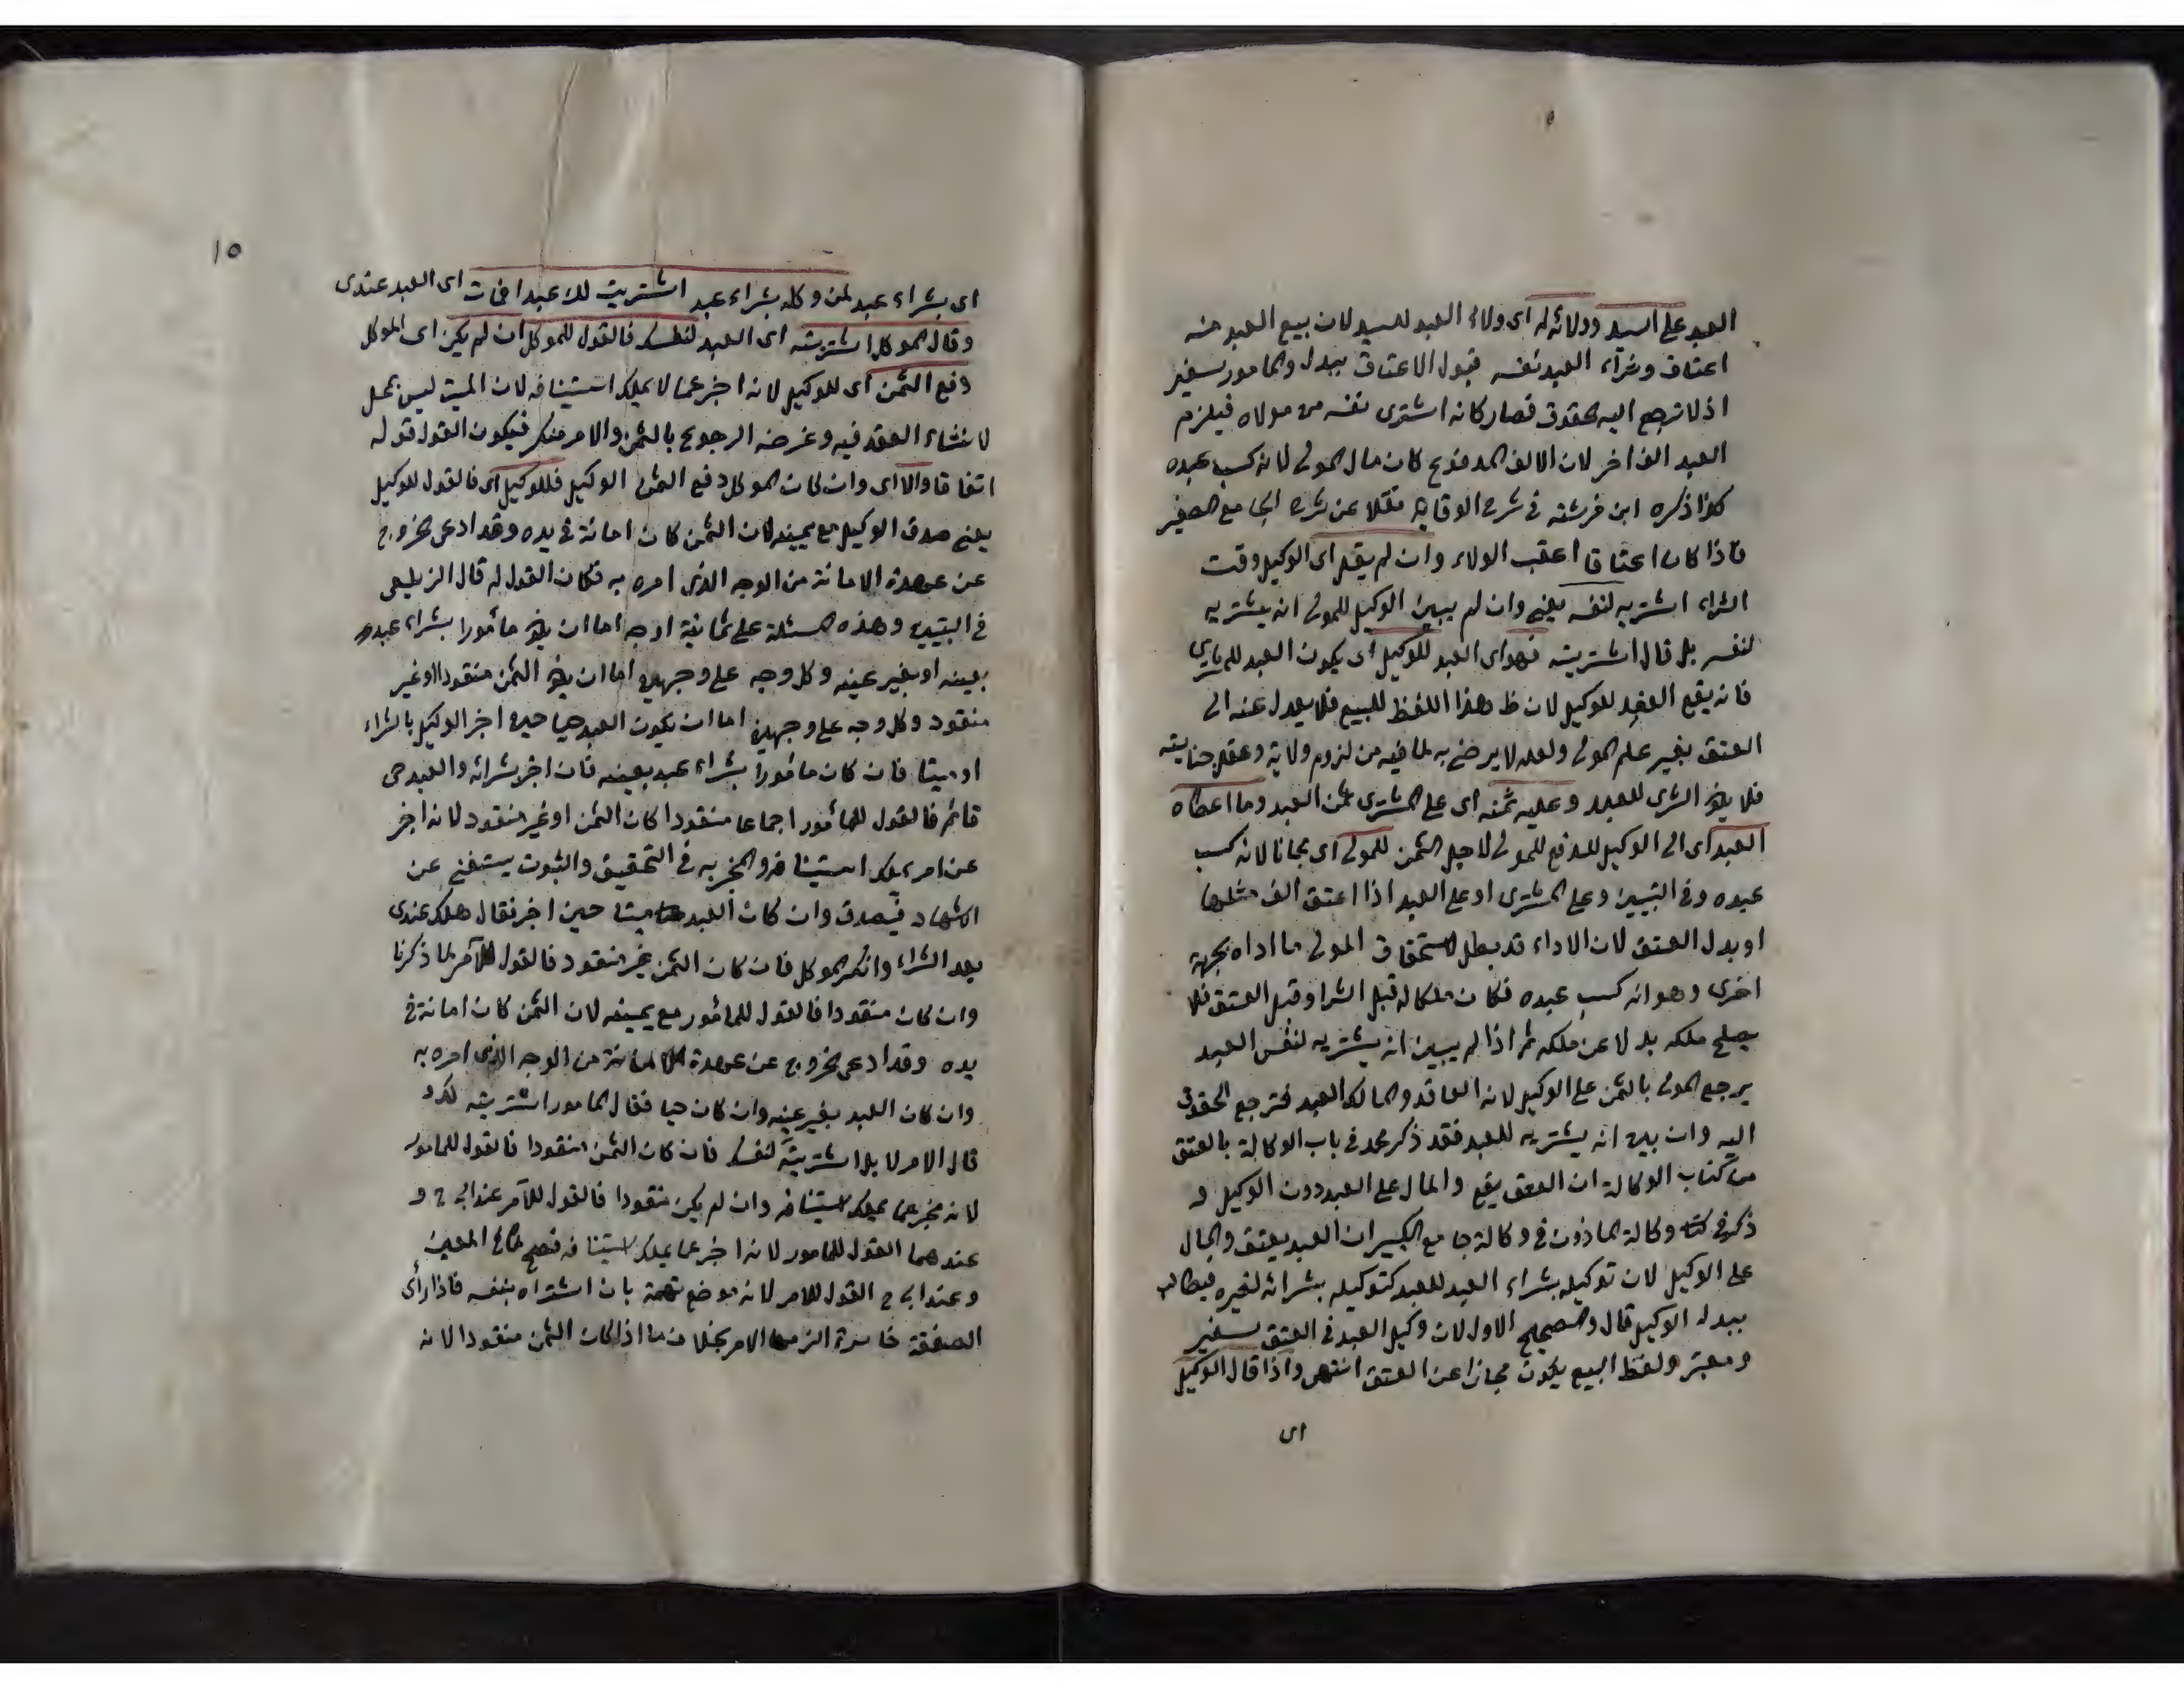 العبد على السيد وولائه له اى ولاء العبد للسيد لان بيع العبد منه
اعتاق وشراء العبد نفسه قبول الاعتاق ببدل والمامور سفير
اذ لا ترجع اليه الحقوق فصار كانه اشترى نفسه من مولاه فيلزم
العبد الف اخر لان الالف المدفوع كان مال المولى لانه كسب عبده
كذا ذكره ابن فرشته فى شرح الوقاية نقلا عن شرح الجامع الصغير
فاذا كان اعتاقا اعقب الولاء وان لم يقل اى الوكيل وقت
الشراء اشتريه لنفسه يعنى وان لم يبين الوكيل للمولى انه يشتريه
لنفسه بل قال اشتريته فهو اى العبد للوكيل اى يكون العبد للمشترى
فانه يقع العقد للوكيل لان ظ هذا اللفظ للبيع فلا يعدل عنه الى
العتق بغير علم المولى ولعله لا يرضى به لما فيه من لزوم ولاية وعقل جنايته
فلا يكون الشرى للعبد وعليه ثمنه اى على المشترى ثمن العبد وما اعطاه
العبد اى الى الوكيل للدفع للمولى لاجل الثمن للمولى اى مجانا لانه كسب
عبده وفى التبيين وعلى المشترى او على العبد اذا اعتق الف مثلها
او بدل العتق لان الاداء قد بطل لاستحقاق المولى ما اداه بجهة
اخرى وهو انه كسب عبده فكان ملكا له قبل الشرا وقبل العتق فلا
يصلح ملكه بدلا عن ملكه ثم اذا لم يبين انه يشتريه لنفس العبد
يرجع المولى بالثمن على الوكيل لانه العاقد والمالك العبد فترجع الحقوق
اليه وان بين انه يشتريه للعبد فقد ذكر محمد فى باب الوكالة بالعتق
من كتاب الوكالة ان العتق يقع والمال على العبد دون الوكيل و
ذكر فى وكالة الماذون فى وكالة جامع الكبير ان العبد يعتق والمال
على الوكيل لان توكيله بشراء العبد للعبد كتوكيله بشرائه لغيره فيطالب
ببدله الوكيل قال والصحيح الاول لان وكيل العبد فى العتق سفير
ومعبر ولفظ البيع يكون مجازا عن العتق انتهى واذا قال الوكيل
اى
١٥
اى بشراء عبد لمن وكله بشراء عبد اشتريت لك عبدا فمات اى العبد عندى
وقال الموكل اشتريته اى العبد لنفسك فالقول للموكل ان لم يكن اى الموكل
دفع الثمن اى للوكيل لانه اخبر عما لا يملك استينافه لان الميت ليس بمحل
لانشاء العقد فيه وغرضه الرجوع بالثمن والامر منكر فيكون القول قوله
اتفاقا والا اى وان كان الموكل دفع الثمن الوكيل فللوكيل اى فالقول للوكيل
يعنى صدق الوكيل مع يمينه لان الثمن كان امانة فى يده وقد ادعى الخروج
عن عهدة الامانة من الوجه الذى امره به فكان القول له قال الزيلعى
فى التبيين وهذه المسئلة على ثمانية اوجه اما ان يكون مأمورا بشراء عبد
بعينه او بغير عينه وكل وجه على وجهين اما ان يكون الثمن منقودا او غير
منقود وكل وجه على وجهين اما ان يكون العبد حيا حين اخبر الوكيل بالشراء
او ميتا فان كان مأمورا بشراء عبد بعينه فان اخبر بشرائه والعبد حى
قائم فالقول للمأمور اجماعا منقودا كان الثمن او غير منقود لانه اخبر
عن امر يملك استينافه والمخبر به فى التحقيق والثبوت يستغنى عن
الاشهاد فيصدق وان كان العبد ميتا حين اخبر فقال هلك عندى
بعد الشراء وانكر الموكل فان كان الثمن غير منقود فالقول للآمر لما ذكرنا
وان كان منقودا فالقول للمأمور مع يمينه لان الثمن كان امانة فى
يده وقد ادعى الخروج عن عهدة الامانة من الوجه الذى امره به
وان كان العبد بغير عينه وان كان حيا فقال المامور اشتريته لك و
قال الامر لا بل اشتريته لنفسك فان كان الثمن منقودا فالقول للمامور
لانه مخبر عما يملك استينافه وان لم يكن منقودا فالقول للآمر عند ابى ح و
عندهما القول للمامور لانه اخبر عما يملك استينافه فصح كما فى المعين
وعند ابى ح القول للامر لانه موضع تهمة بان اشتراه بنفسه فاذا رأى
الصفقة خاسرة الزمها الامر بخلاف ما اذا كان الثمن منقودا لانه